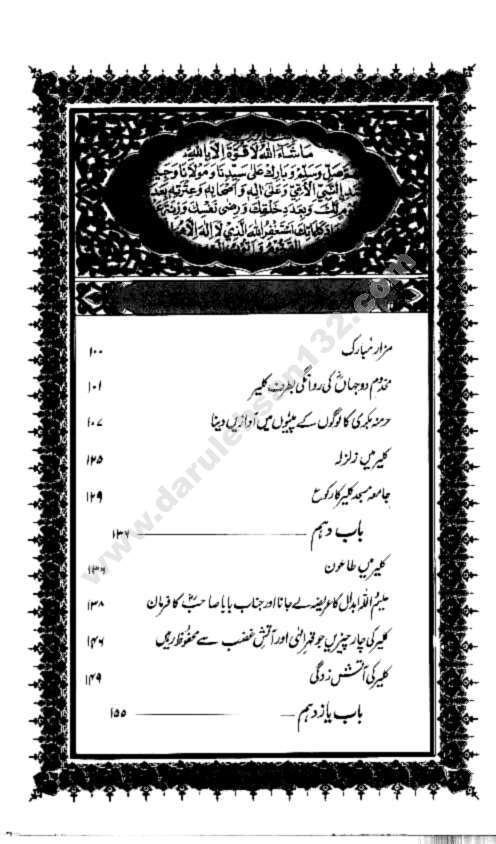 مَا شَآءَ اللّٰهُ لَا قُوَّةَ اِلَّا بِاللّٰهِ
وَصَلِّ وَسَلِّمْ وَبَارِكْ عَلٰى سَيِّدِنَا وَمَوْلَانَا
النَّبِيِّ الْاُمِّيِّ وَعَلٰى اٰلِهٖ وَاَصْحَابِهٖ وَعِتْرَتِهٖ بِعَدَدِ
وَبِعَدَدِ خَلْقِكَ وَرِضٰى نَفْسِكَ وَزِنَةَ
اَسْتَغْفِرُ اللّٰهَ الَّذِيْ لَا اِلٰهَ اِلَّا هُوَ
مزار مبارک ۱۰۰
مخدوم دو جہاںؒ کی روانگی بطرف کلیر ۱۰۱
حرمنہ بکری کا لوگوں کے پیٹوں میں آوازیں دینا ۱۰۷
کلیر میں زلزلہ ۱۲۵
جامعہ مسجد کلیر کا رکوع ۱۲۹
باب دہم ۱۳۶
کلیر میں طاعون ۱۳۶
علیم اللہ ابدال کا عریضہ لے جانا اور جناب بابا صاحبؒ کا فرمان ۱۳۸
کلیر کی چار چیزیں جو قہر الٰہی اور آتش غضب سے محفوظ رہیں ۱۴۶
کلیر کی آتش زدگی ۱۴۹
باب یازدہم ۱۵۵
www.darulehsan132.com